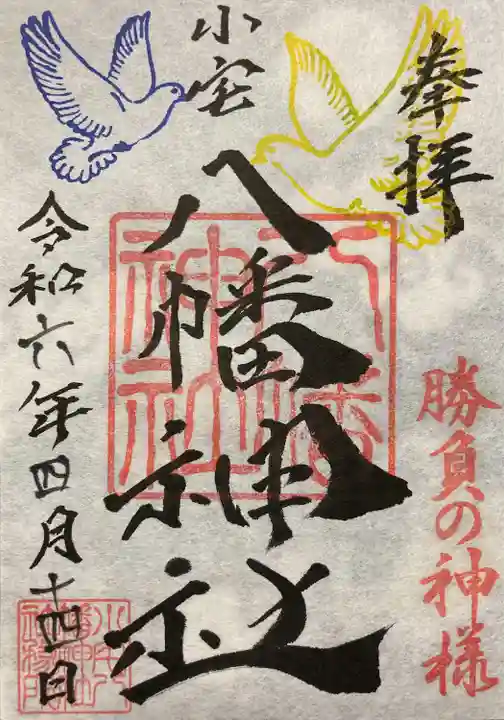 奉拝
勝負の神様
小宅
八幡神社
八幡神社
令和六年四月十四日